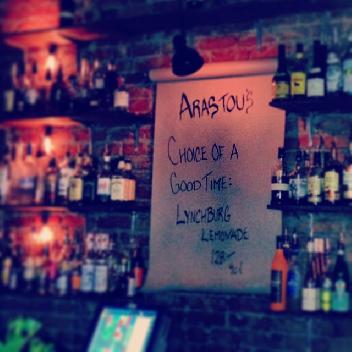 ARASTOU'S
CHOICE OF A
GOOD TIME:
LYNCHBURG
LEMONADE